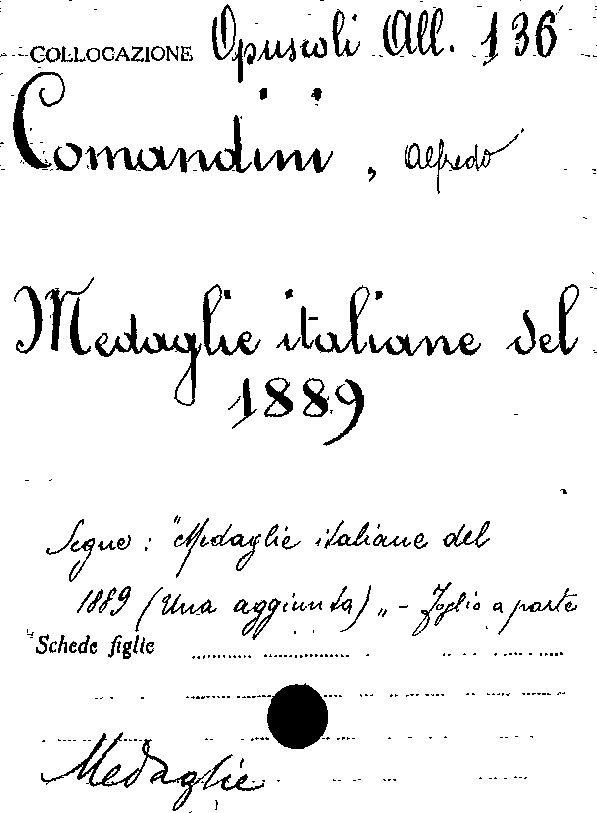 COLLOCAZIONE Opuscoli All. 136
Comandini, Alfredo
Medaglie italiane del
1889
Segue: "Medaglie italiane del
1889 (Una aggiunta)„ - foglio a parte
Schede figlie
Medaglie